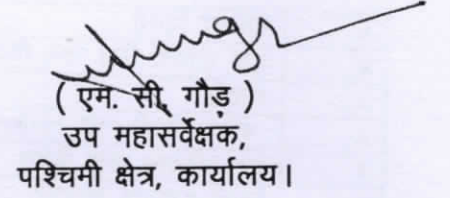 ( एम. सी. गौड़ )
उप महासर्वेक्षक,
पश्चिमी क्षेत्र, कार्यालय।